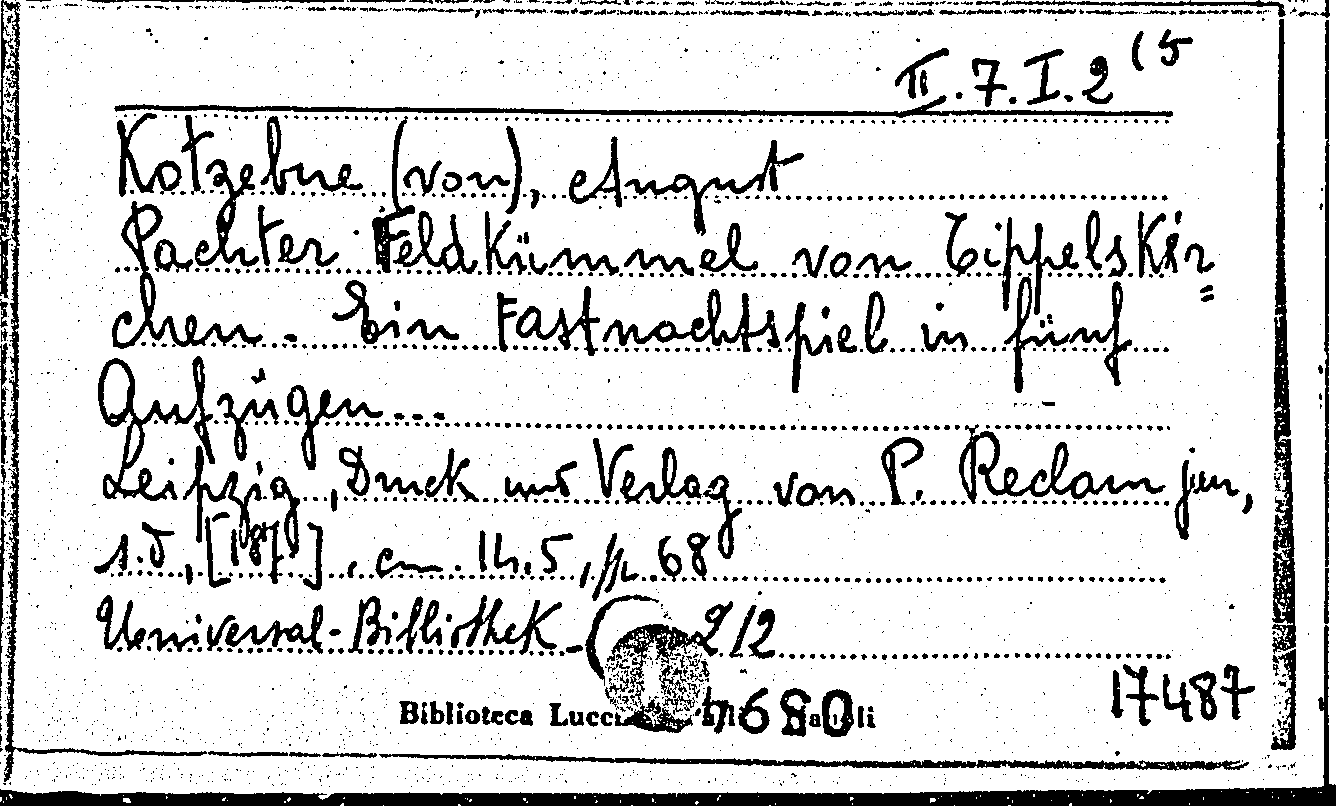 II.7.I.2 (5
Kotzebue (von), August
Pachter Feldkümmel von Tippelskir=
chen. Ein Fastnachtspiel in fünf
Aufzügen...
Leipzig, Druck und Verlag von P. Reclam jun,
s.d, [187 ], cm. 14.5, pp. 68
Universal-Bibliothek - 212
Biblioteca Lucch 7680
17487